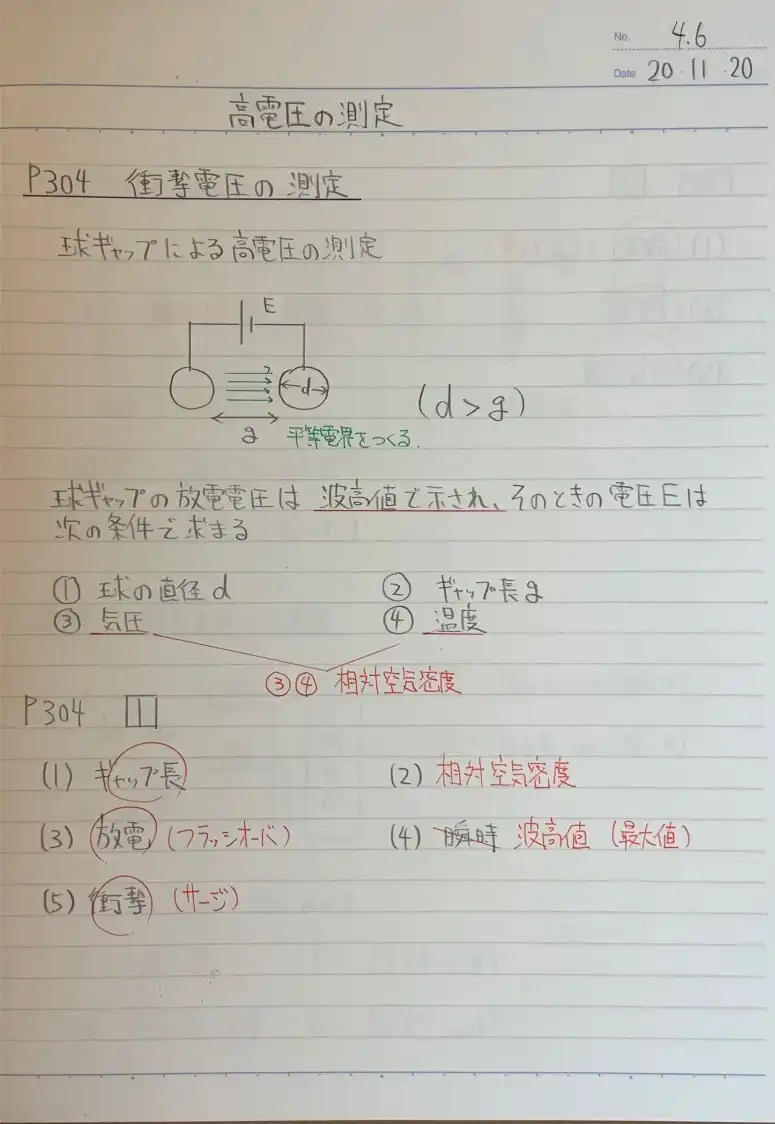 No. 4.6
Date 20・11・20
高電圧の測定
P304 衝撃電圧の測定
球ギャップによる高電圧の測定
E
d
(d>g)
g 平等電界をつくる.
球ギャップの放電電圧は 波高値で示され、そのときの電圧Eは
次の条件で求まる
① 球の直径d ② ギャップ長g
③ 気圧 ④ 温度
③④ 相対空気密度
P304 1
(1) ギャップ長 (2) 相対空気密度
(3) 放電 (フラッシオーバ) (4) 瞬時 波高値 (最大値)
(5) 衝撃 (サージ)